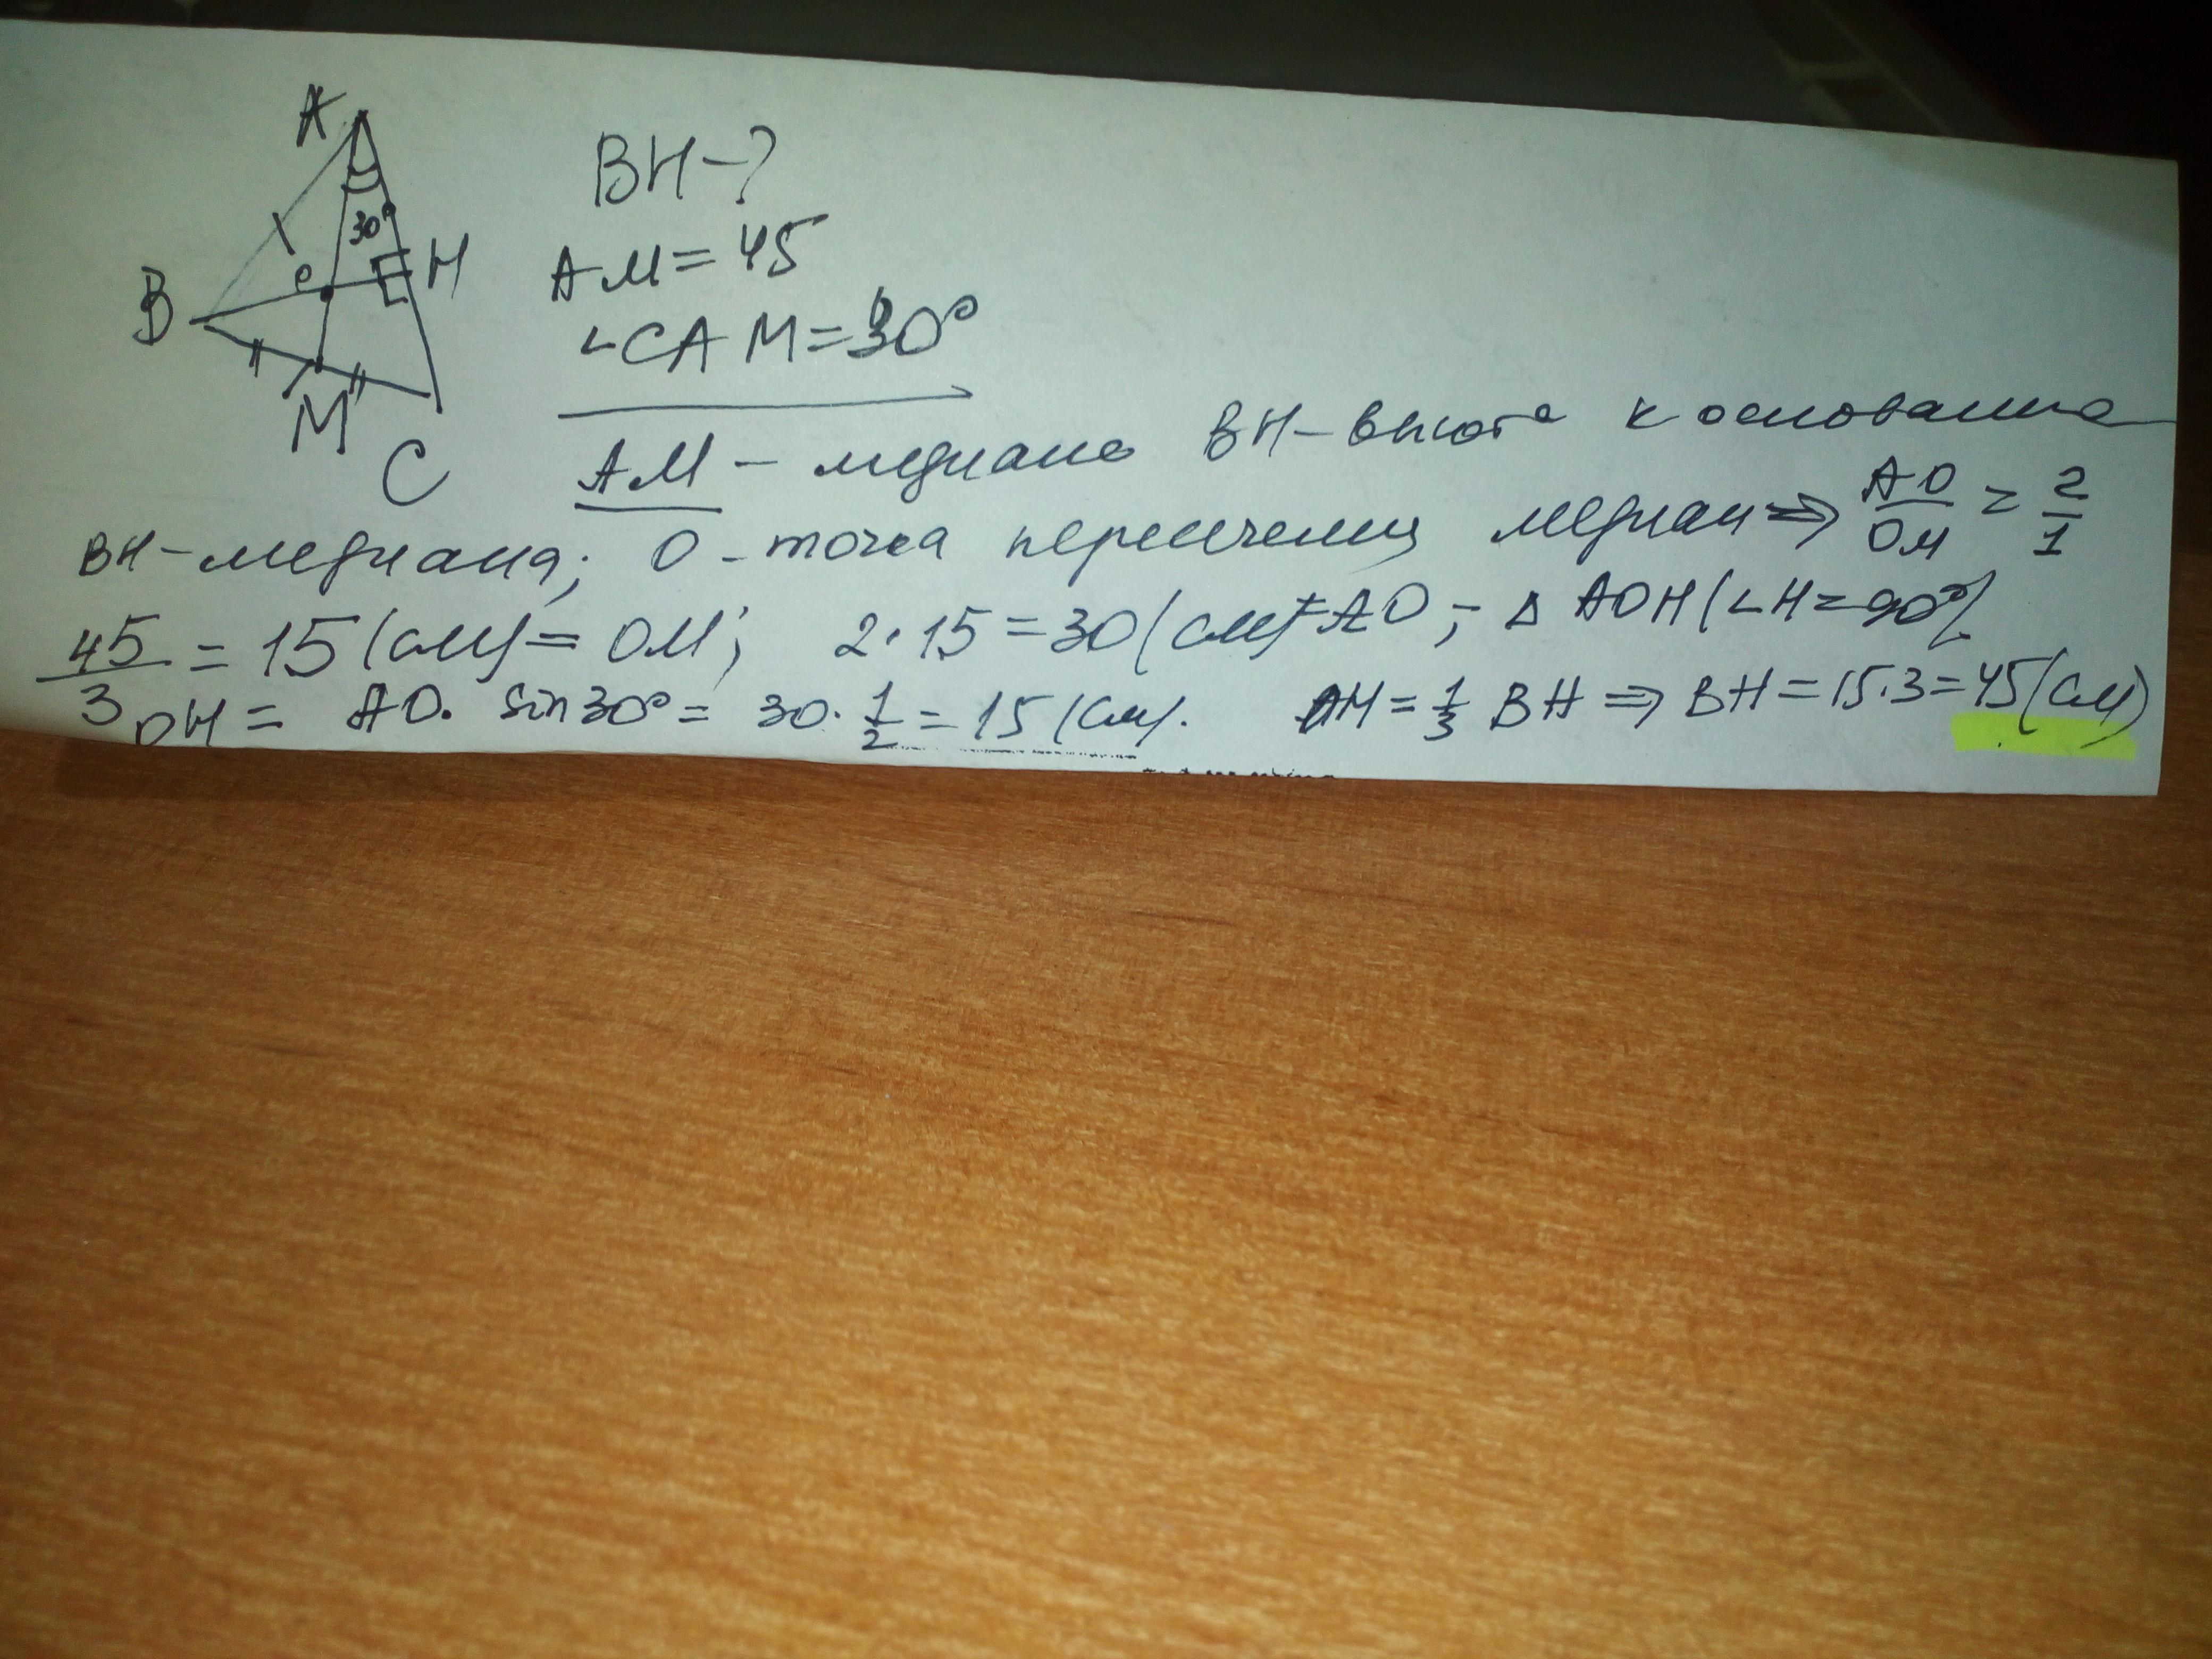 A
30°
B
O
H
M
C
BH-?
AM = 45
∠CAM = 30°
AM - медиана BH - высота к основанию
BH - медиана; O - точка пересечения медиан ⇒ AO/OM = 2/1
45/3 = 15 (см) = OM; 2·15 = 30 (см) = AO; - Δ AOH (∠H = 90°)
OH = AO · sin30° = 30 · 1/2 = 15 (см). OH = 1/3 BH ⇒ BH = 15·3 = 45 (см)